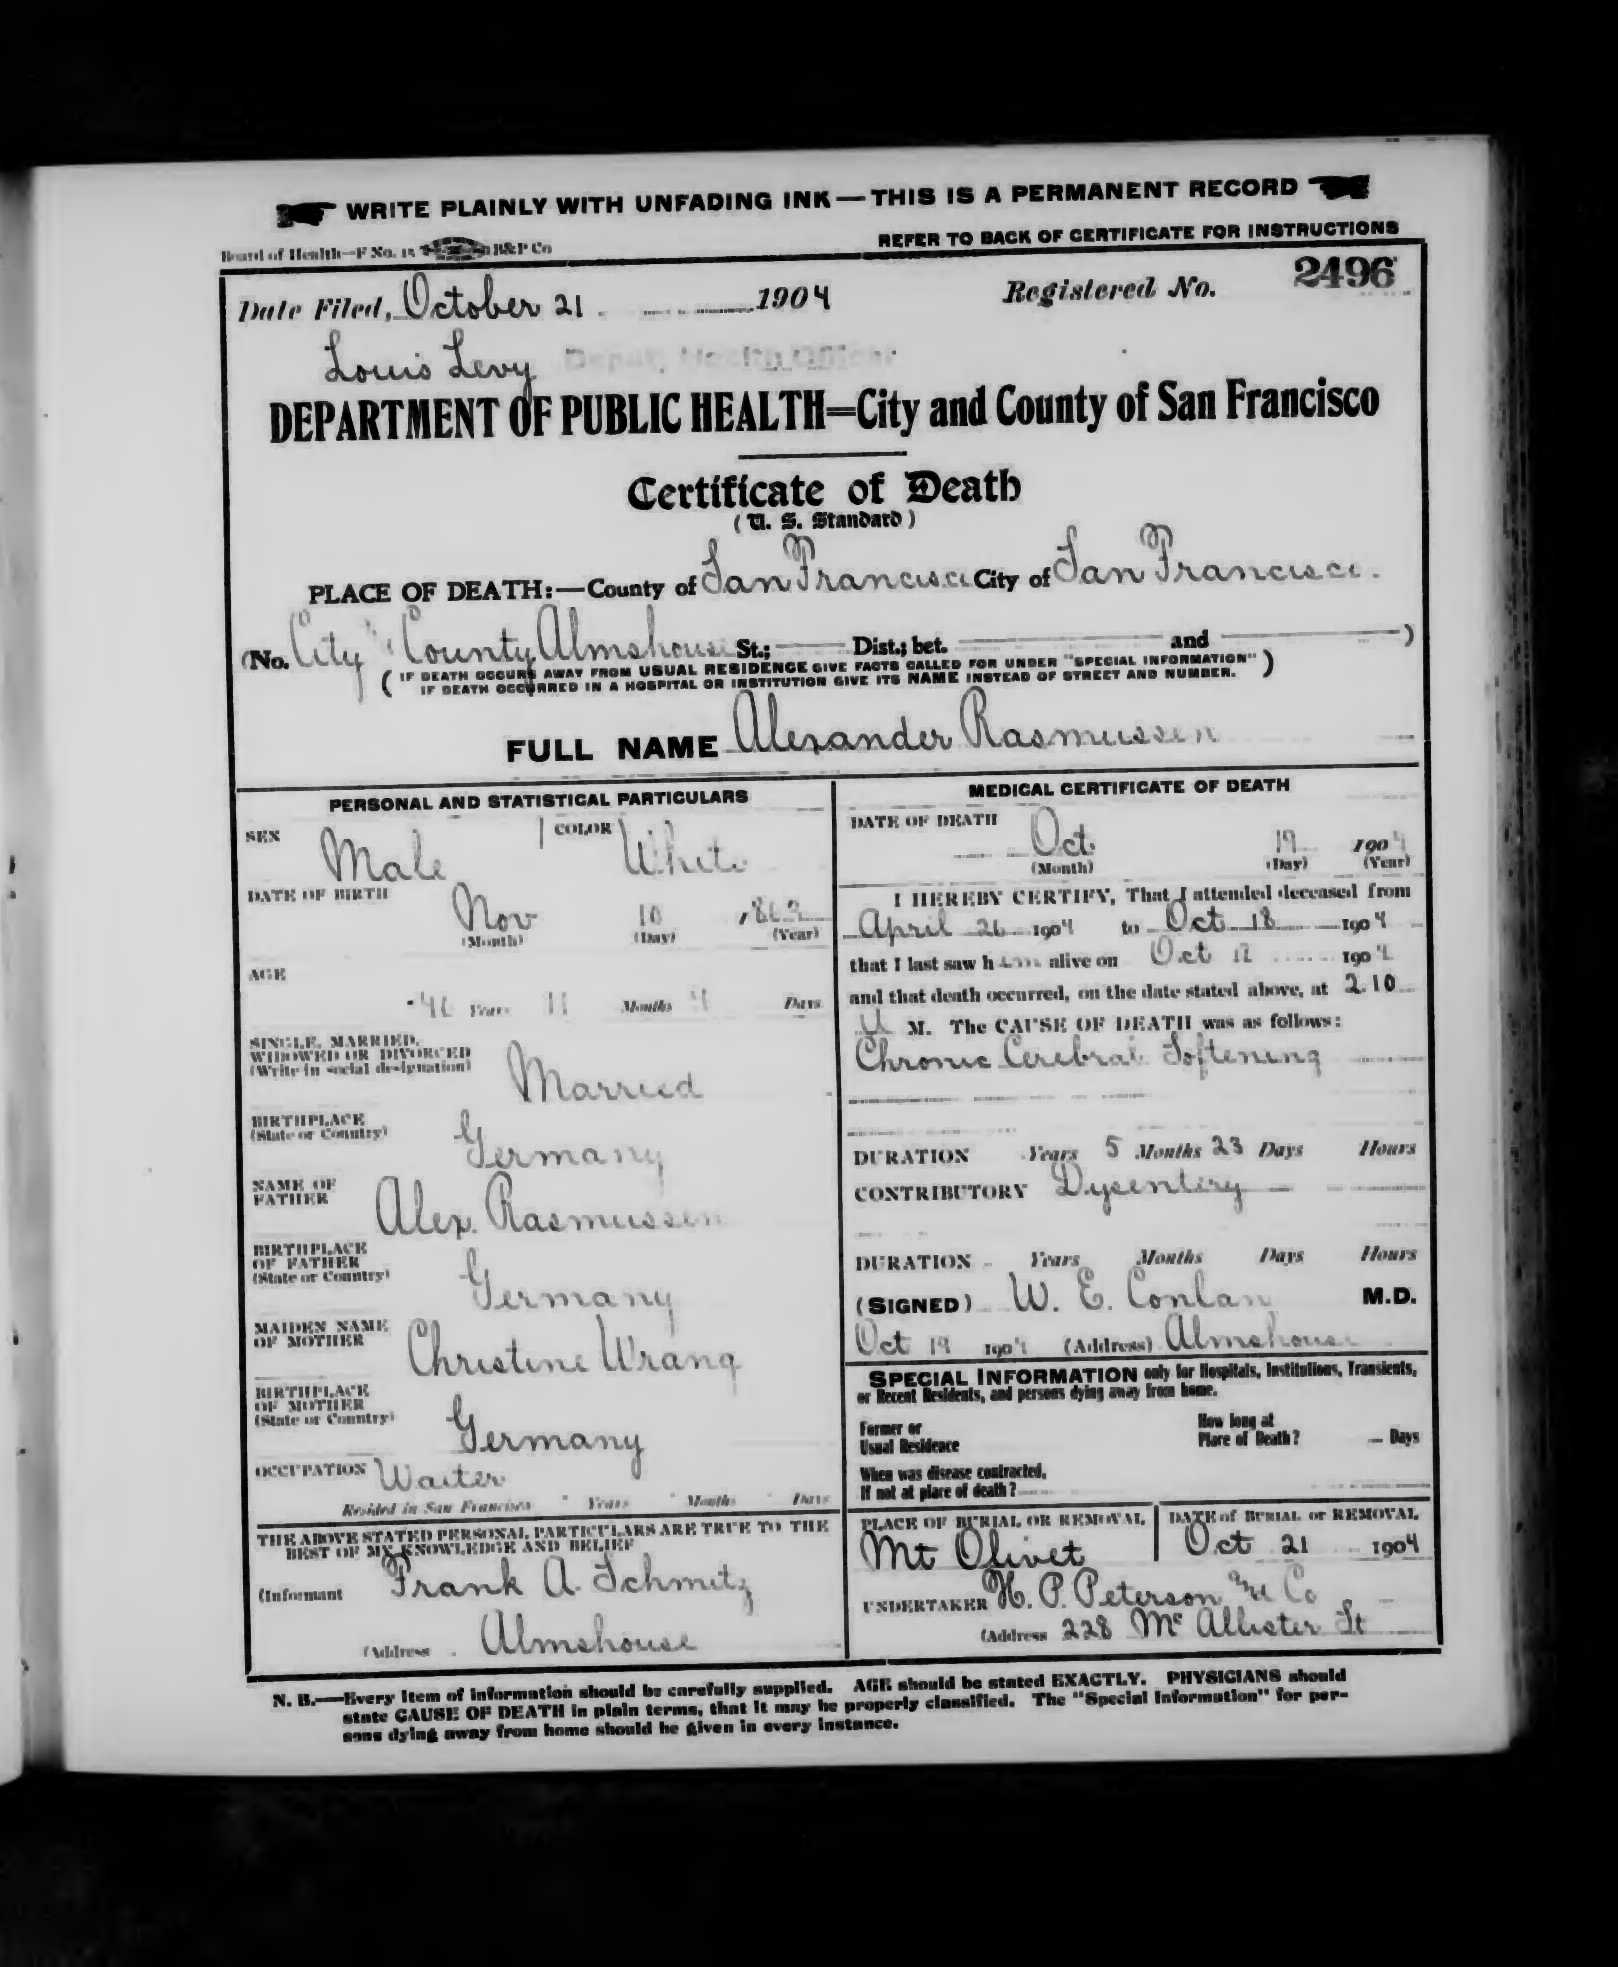 WRITE PLAINLY WITH UNFADING INK — THIS IS A PERMANENT RECORD
Board of Health—F No. 15 B&P Co
REFER TO BACK OF CERTIFICATE FOR INSTRUCTIONS
Date Filed, October 21 1904 Registered No. 2496
Louis Levy Deputy Health Officer
DEPARTMENT OF PUBLIC HEALTH=City and County of San Francisco
Certificate of Death
(U. S. Standard)
PLACE OF DEATH:—County of San Francisco City of San Francisco.
(No. City & County Almshouse St.; Dist.; bet. and )
( IF DEATH OCCURS AWAY FROM USUAL RESIDENCE GIVE FACTS CALLED FOR UNDER "SPECIAL INFORMATION" )
IF DEATH OCCURRED IN A HOSPITAL OR INSTITUTION GIVE ITS NAME INSTEAD OF STREET AND NUMBER.
FULL NAME Alexander Rasmussen
PERSONAL AND STATISTICAL PARTICULARS
SEX Male COLOR White
DATE OF BIRTH
Nov 10
(Month) (Day) (Year)
AGE
Years 11 Months Days
SINGLE, MARRIED,
WIDOWED OR DIVORCED
(Write in social designation) Married
BIRTHPLACE
(State or Country) Germany
NAME OF
FATHER Alex. Rasmussen
BIRTHPLACE
OF FATHER
(State or Country) Germany
MAIDEN NAME
OF MOTHER Christine Wrang
BIRTHPLACE
OF MOTHER
(State or Country) Germany
OCCUPATION Waiter
Resided in San Francisco Years Months Days
THE ABOVE STATED PERSONAL PARTICULARS ARE TRUE TO THE
BEST OF MY KNOWLEDGE AND BELIEF
(Informant Frank A. Schmitz
(Address Almshouse
MEDICAL CERTIFICATE OF DEATH
DATE OF DEATH
Oct. 19 1904
(Month) (Day) (Year)
I HEREBY CERTIFY, That I attended deceased from
April 26 1904 to Oct 18 1904
that I last saw him alive on Oct 1904
and that death occurred, on the date stated above, at 2.10
M. The CAUSE OF DEATH was as follows:
Chronic Cerebral Softening
DURATION Years 5 Months 23 Days Hours
CONTRIBUTORY Dysentery
DURATION Years Months Days Hours
(SIGNED) W. E. Conlan M.D.
Oct 19 1904 (Address) Almshouse
SPECIAL INFORMATION only for Hospitals, Institutions, Transients,
or Recent Residents, and persons dying away from home.
Former or
Usual Residence
How long at
Place of Death? Days
When was disease contracted,
If not at place of death?
PLACE OF BURIAL OR REMOVAL
Mt Olivet
DATE of BURIAL or REMOVAL
Oct 21 1904
UNDERTAKER H. P. Peterson & Co
(Address 228 Mc Allister St
N. B.—Every item of information should be carefully supplied. AGE should be stated EXACTLY. PHYSICIANS should
state CAUSE OF DEATH in plain terms, that it may be properly classified. The "Special Information" for per-
sons dying away from home should be given in every instance.